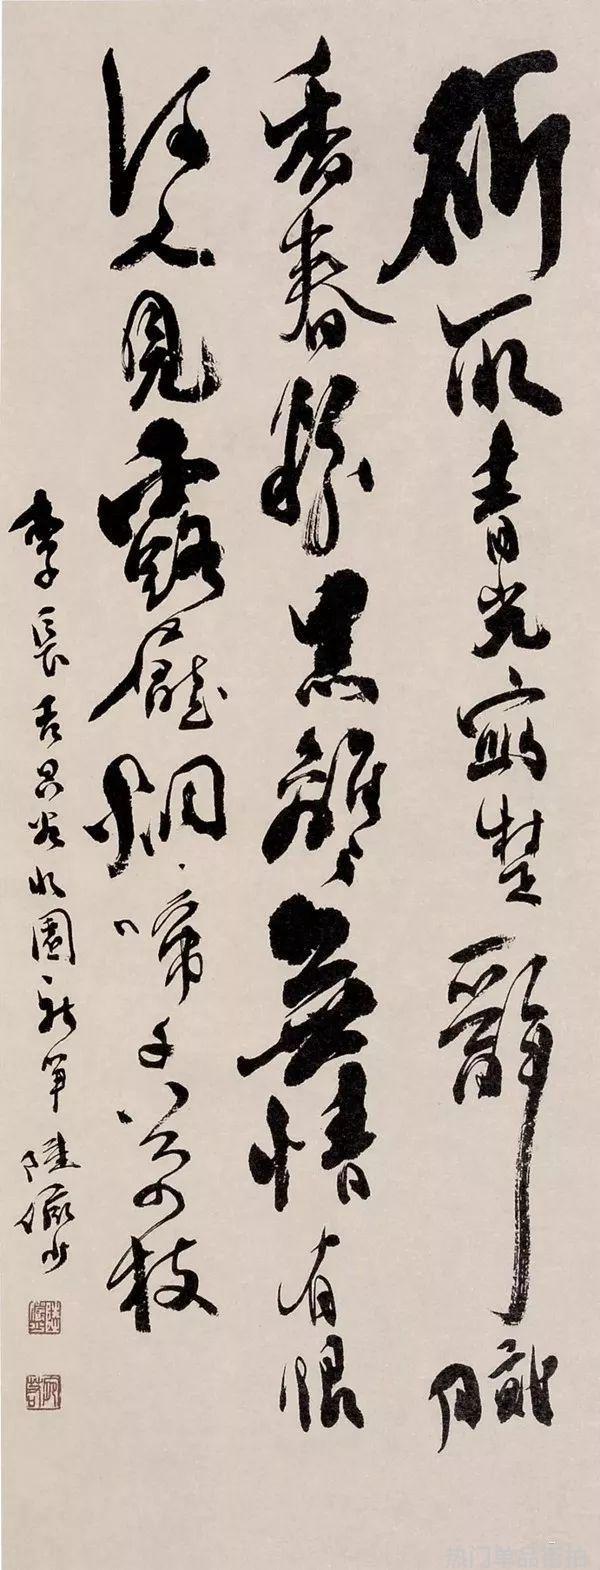 斫取青光寫楚辭膩
香春粉黑離〻無情有恨
何人見露壓烟啼千萬枝
李長吉昌谷北園新筍 陸儼少
热门单品